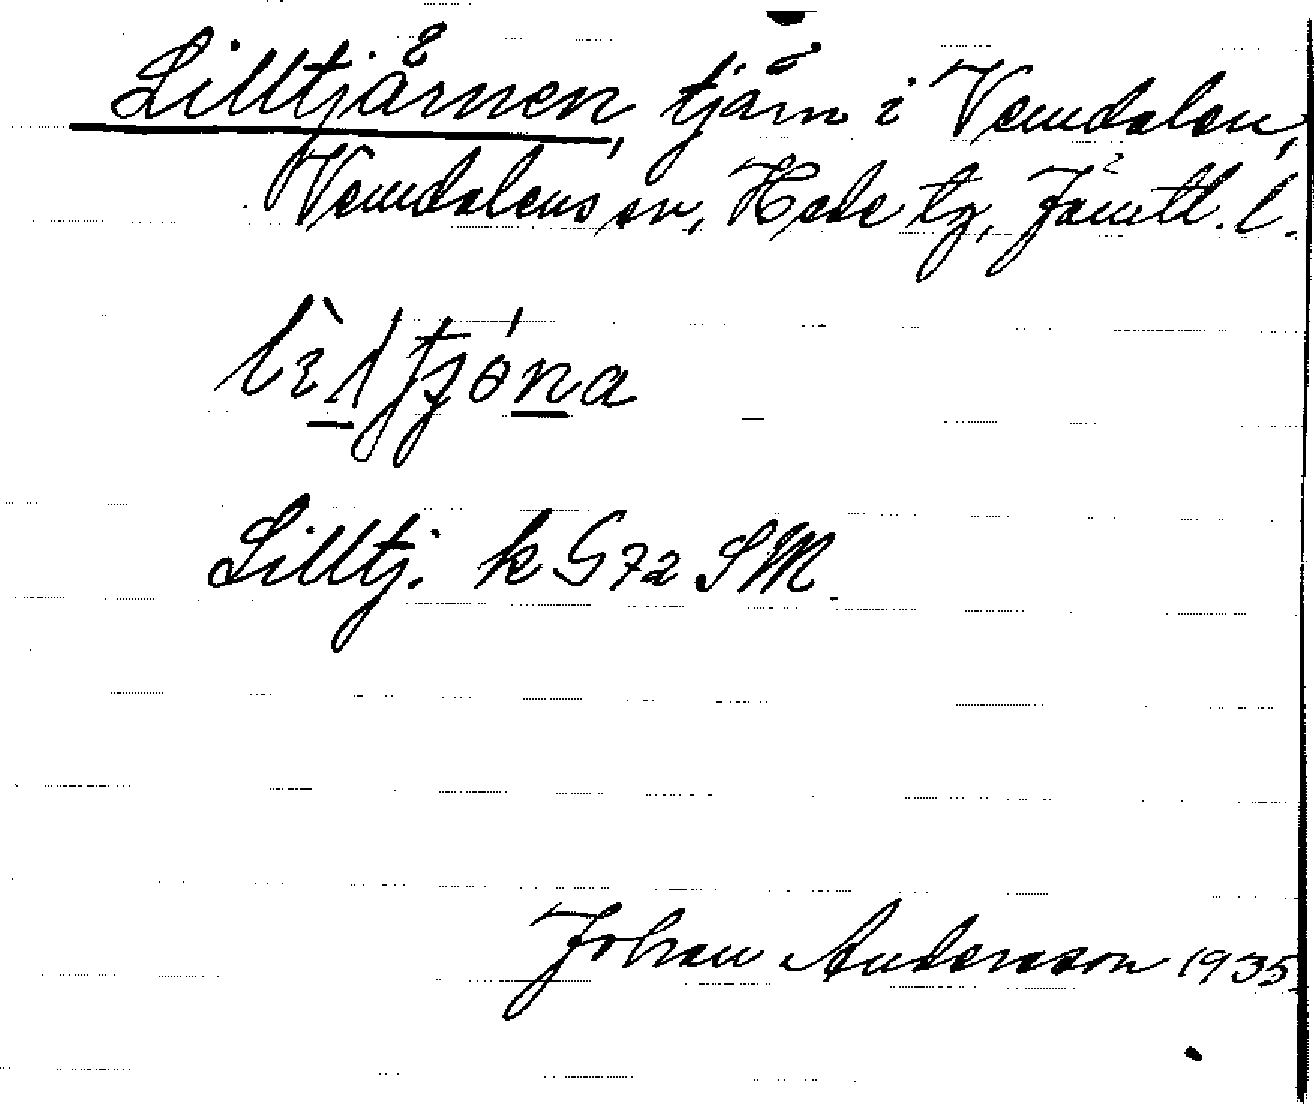 Lilltjärnen, tjärn i Vemdalen,
Vemdalens sn, Hede tg, Jämtl. l.
Lilltj. k G72 SM.
Johan Andersson 1935.